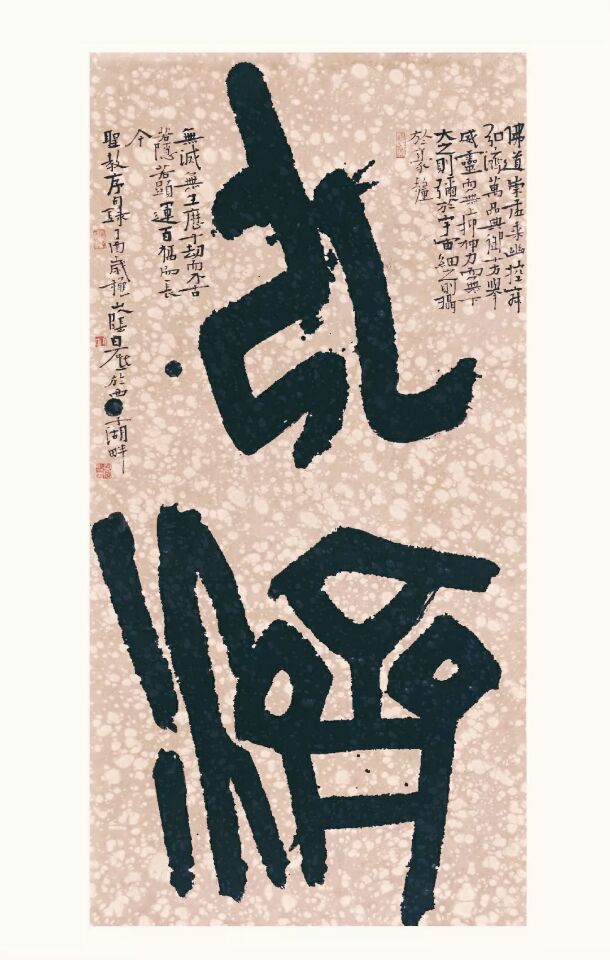 弘濟
佛道崇虛乘幽控寂
弘濟萬品典御十方舉
威靈而無上抑神力而無下
大之則彌於宇宙細之則攝
於毫釐
無滅無生歷千劫而不古
若隱若顯運百福而長
今
聖教序句錄丁酉歲穐山陰白砥於西湖畔